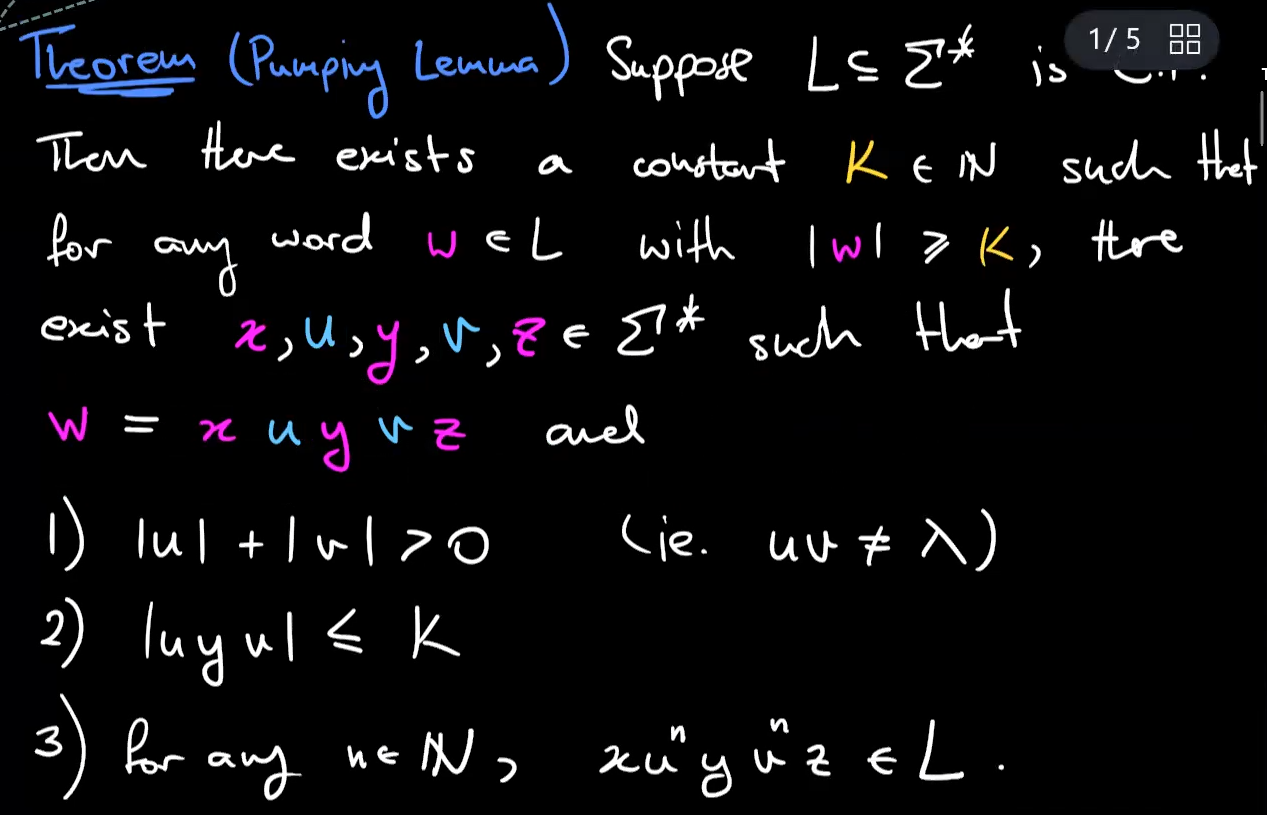 Theorem (Pumping Lemma) Suppose L ⊆ Σ* is
1/5
Then there exists a constant K ∈ ℕ such that
for any word w ∈ L with |w| ⩾ K, there
exist x, u, y, v, z ∈ Σ* such that
w = x u y v z and
1) |u| + |v| > 0 (ie. uv ≠ λ)
2) |u y v| ≤ K
3) for any n ∈ ℕ, xuⁿyvⁿz ∈ L.